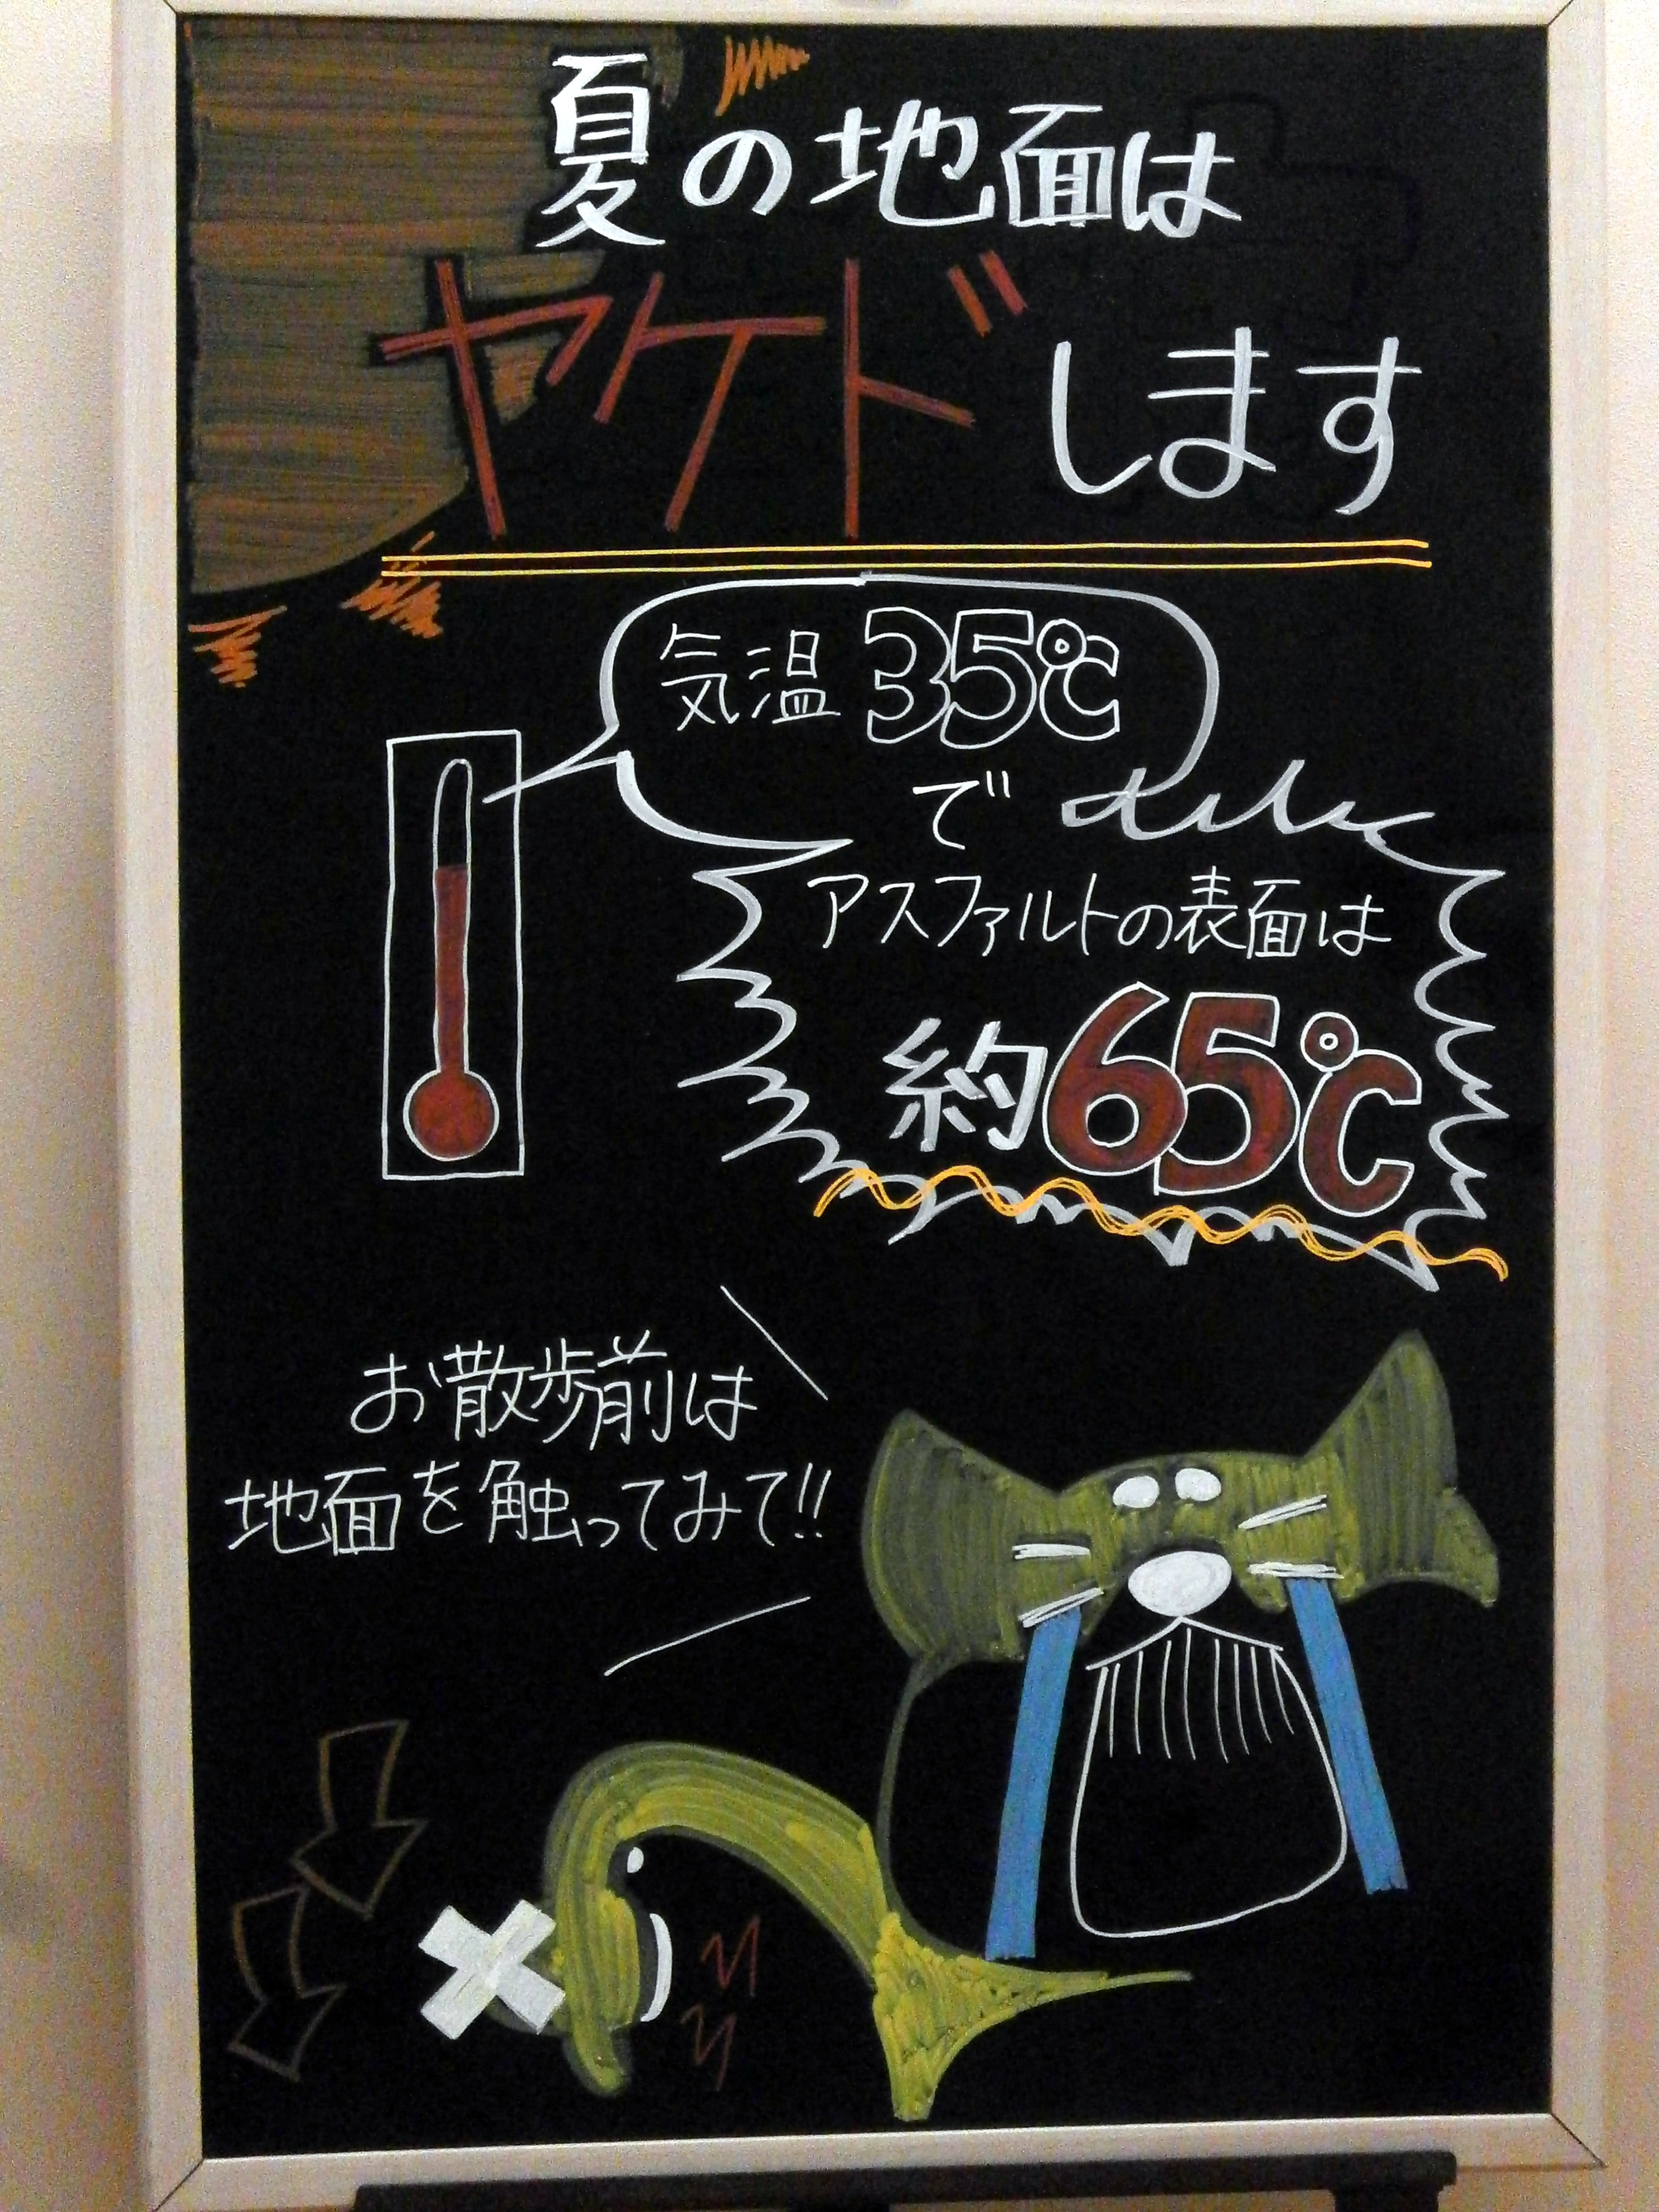 夏の地面は
ヤケドします
気温35℃
で
アスファルトの表面は
約65℃
お散歩前は
地面を触ってみて!!